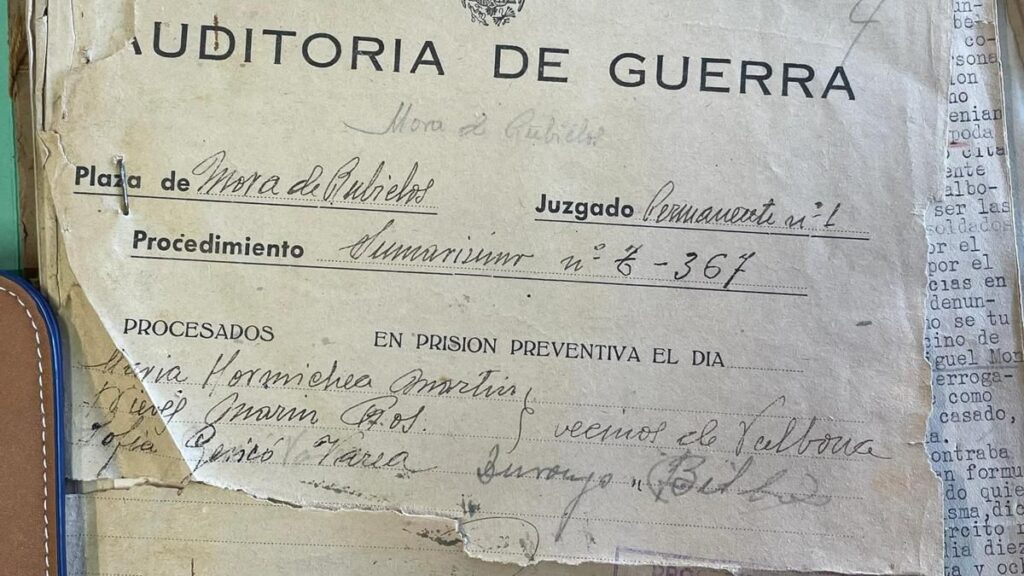 4
AUDITORIA DE GUERRA
Mora de Rubielos
Plaza de Mora de Rubielos
Juzgado Permanente nº 1
Procedimiento Sumarisimo nº Z-367
PROCESADOS
EN PRISION PREVENTIVA EL DIA
Maria Hormichea Martin
Nieves Marin Ros.
vecinos de Valbona
Sofia Gericó Varea
Durango (Bilbao
be-
co-
sona
ion
no
enian
poda
cita
ente
albo-
ser las
soldados
or el
por el
cias en
denun-
no se tu
cino de
iguel Mon
erroga-
como
casado,
a.
ontraba
n formu
do quie
sma,dic
ército n
ia diez
ta y och